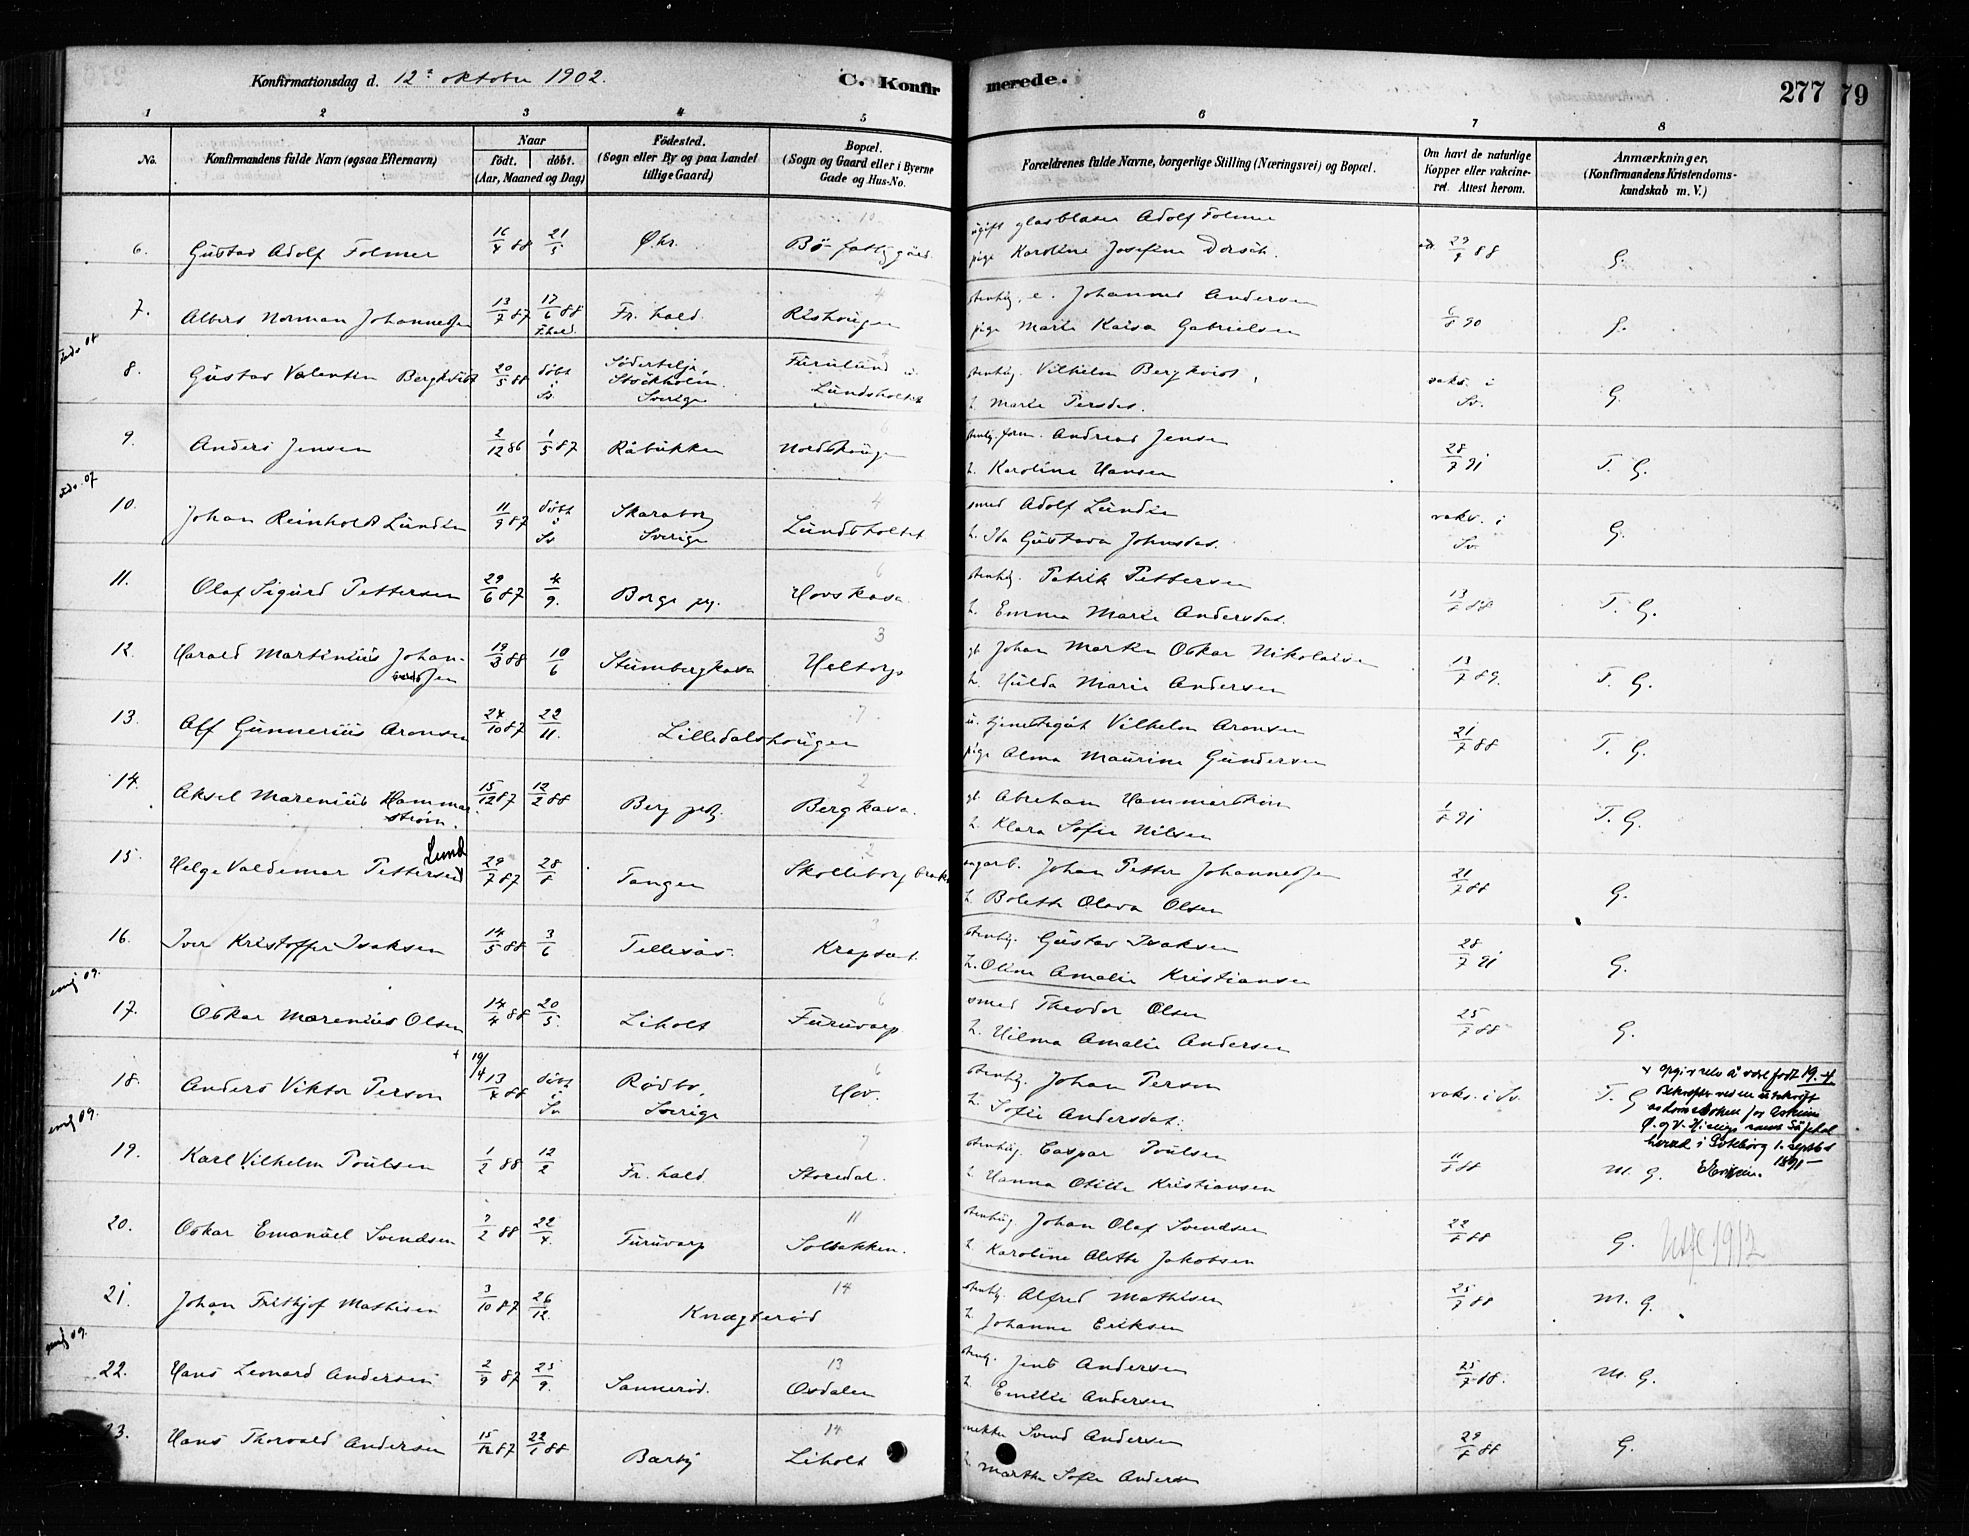 Konfirmationsdag d. 12te oktober 1902.
C. Konfir
merede.
277
79
1 2 3 4 5 6 7 8
No.
Konfirmandens fulde Navn (ogsaa Efternavn)
Naar
födt. döbt.
(Aar, Maaned og Dag)
Födested.
(Sogn eller By og paa Landet
tillige Gaard)
Bopæl.
(Sogn og Gaard eller i Byerne
Gade og Hus-No.
Forældrenes fulde Navne, borgerlige Stilling (Næringsvei) og Bopæl.
Om havt de naturlige
Kopper eller vakcine-
ret. Attest herom.
Anmærkninger.
(Konfirmandens Kristendoms-
kundskab m. V.)
10
ugift glasblaser Adolf Folmer
6. Gustav Adolf Folmer 16/4 88 21/5 Bö fattiggård pige Karoline Josefine 29/9 88 G.
4
stenhug. e. Johannes Andersen
7. Albert Norman Johannessen 13/7 87 17/6 88 F.hald. Fr.hald. Rishaugen pige Marie Kaisa Gabrielsen 6/8 90 G.
8. Gustav Valentin Bergkvist 20/5 88 döbt i Sv. Södertelje, Stockholm Sverige Furulund u. Lundsholtet
stenhug. Vilhelm Bergkvist,
h. Marie Persdat. vaks. i Sv. G.
6
stenhg. form. Andreas Jensen
9. Anders Jensen 2/12 86 1/5 87 Råbukken Nordshaugen h. Karoline Hansen 28/7 91 T. G.
4
smed Adolf Lundin
10. Johan Reinholdt Lundin 11/9 87 döbt i Sv. Skaraborg Sverige Lundsholtet h. Ida Gustava Johnsdat. vaks. i Sv. G.
6
stenhg. Patrik Pettersen
11. Olaf Sigurd Pettersen 29/6 87 4/9. Borge pg. Hovskasa h. Emma Marie Andersdat. 13/7 88 T. G.
3
gb. Johan Martin Oskar Nikolaisen
12. Harald Martinius Johanssen 19/3 88 10/6 Stumbergkasa Heltorp h. Hulda Marie Andersen 13/7 89. T. G.
7
u. tjenestegut Vilhelm Aronsen
13. Alf Gunnerius Aronsen 24/10 87 22/11. Lilledalshaugen pige Alma Maurine Gundersen 21/7 88 T. G.
2
gb. Abraham Hammarström
14. Aksel Marenius Hammarström. 15/12 87 12/2 88 Berg pg. Bergkasa. h. Klara Sofie Nilsen 1/8 91 T. G.
2
sagarb. Johan Petter Johannessen
15. Helge Valdemar Pettersen Lund 29/7 87 28/8 Tangen Skolleborg h. Bolette Olava Olsen 21/7 88 G.
3
stenhg. Gustav Isaksen
16. Iver Kristoffer Isaksen 14/5 88 3/6 Krapsat. h. Oline Amalie Kristiansen 28/7 91 G.
6
smed Theodor Olsen
17. Oskar Marenius Olsen 14/4 88 20/5. Liholt Furuvarp h. Hilma Amalie Andersen 25/7 88 G.
6
stenhg. Johan Person
18. Anders Viktor Person + 19/4 13/4 88 döbt i Sv. Rödbo, Sverige Hov. h. Sofie Andersdat. vaks. i Sv. T. G
+ opgives selv å være født 19.-4
Göteborg 1. 1891
7
stenhug. Caspar Poulsen
19. Karl Vilhelm Poulsen 1/2 88 12/2 Fr.hald. Storedal. h. Hanna Otilie Kristiansen 11/8 88 M. G.
11
stenhug. Johan Olaf Svendsen
20. Oskar Emanuel Svendsen 7/2 88 22/4. Furuvarp Solbakken. h. Karoline Alette Jakobsen 22/8 88 G. 1912
14
stenhg. Alfred Mathisen
21. Johan Frithjof Mathisen 3/10 87 26/12. Knagteröd h. Johanne Eriksen 25/7 88 M. G.
13
stenh. Jens Andersen
22. Hans Leonard Andersen 2/9 87 25/9. Sannerød. Osdalen h. Emilie Andersen 25/7 88. M. G.
14
Svend Andersen
23. Hans Thorvald Andersen 15/12 87 22/1 88 Barby Liholt h. Marthe Sofie Andersen 29/8 88 G.